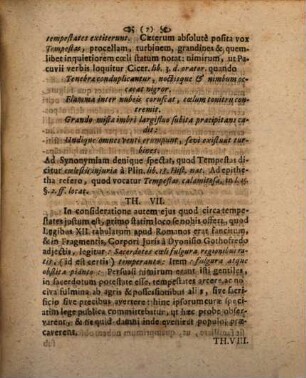 (7)
tempestates extiterunt. Cæterum absolutè posita vox
Tempestas, procellam, turbinem, grandines &, quem-
libet inquietiorem cœli statum notat: nimirum, ut Pa-
cuvii verbis loquitur Cicer. lib. 3. d. orator. quando
Tenebræ conduplicantur, noctisque & nimbûm oc-
cæcat nigror.
Flamma inter nubeis coruscat, cœlum tonitru con-
tremit.
Grando mista imbri largifluo subita præcipitans ca-
dit:
Undique omnes venti erumpunt, sævi existunt tur-
bines:
Ad Synonymiam denique spectat, quod Tempestas di-
citur cœlestis injuria à Plin. lib. 17. Hist. nat. Ad epithe-
theta refero, quod vocatur Tempestas calamitosa, in l. 15.
§. 2. ff. locat.
TH. VII.
In consideratione autem ejus quod circa tempe-
states justum est, primo statim loco se nobis offert, quod
Legibus XII. tabularum apud Romanos erat sancitum,
& in Fragmentis, Corpori Juris à Dyonisio Gothofredo
adjectis, legitur: Sacerdotes cœli fulgura regionibus ra-
tis: (id est certis) temperanto: Item: fulgura atque
obstita pianto: Persuasi nimirum erant isti gentiles,
in sacerdotum potestate esse, tempestates arcere, ac no-
civa fulmina ab agris & possessionibus alis, sive sacri-
ficio sive precibus avertere: ideoque ipsorum cura speci-
alem lege publica committebant, ut hæc probe obser-
varent, & ne quid damni inde eveniret populo, præ-
caverent.
TH. VIII.